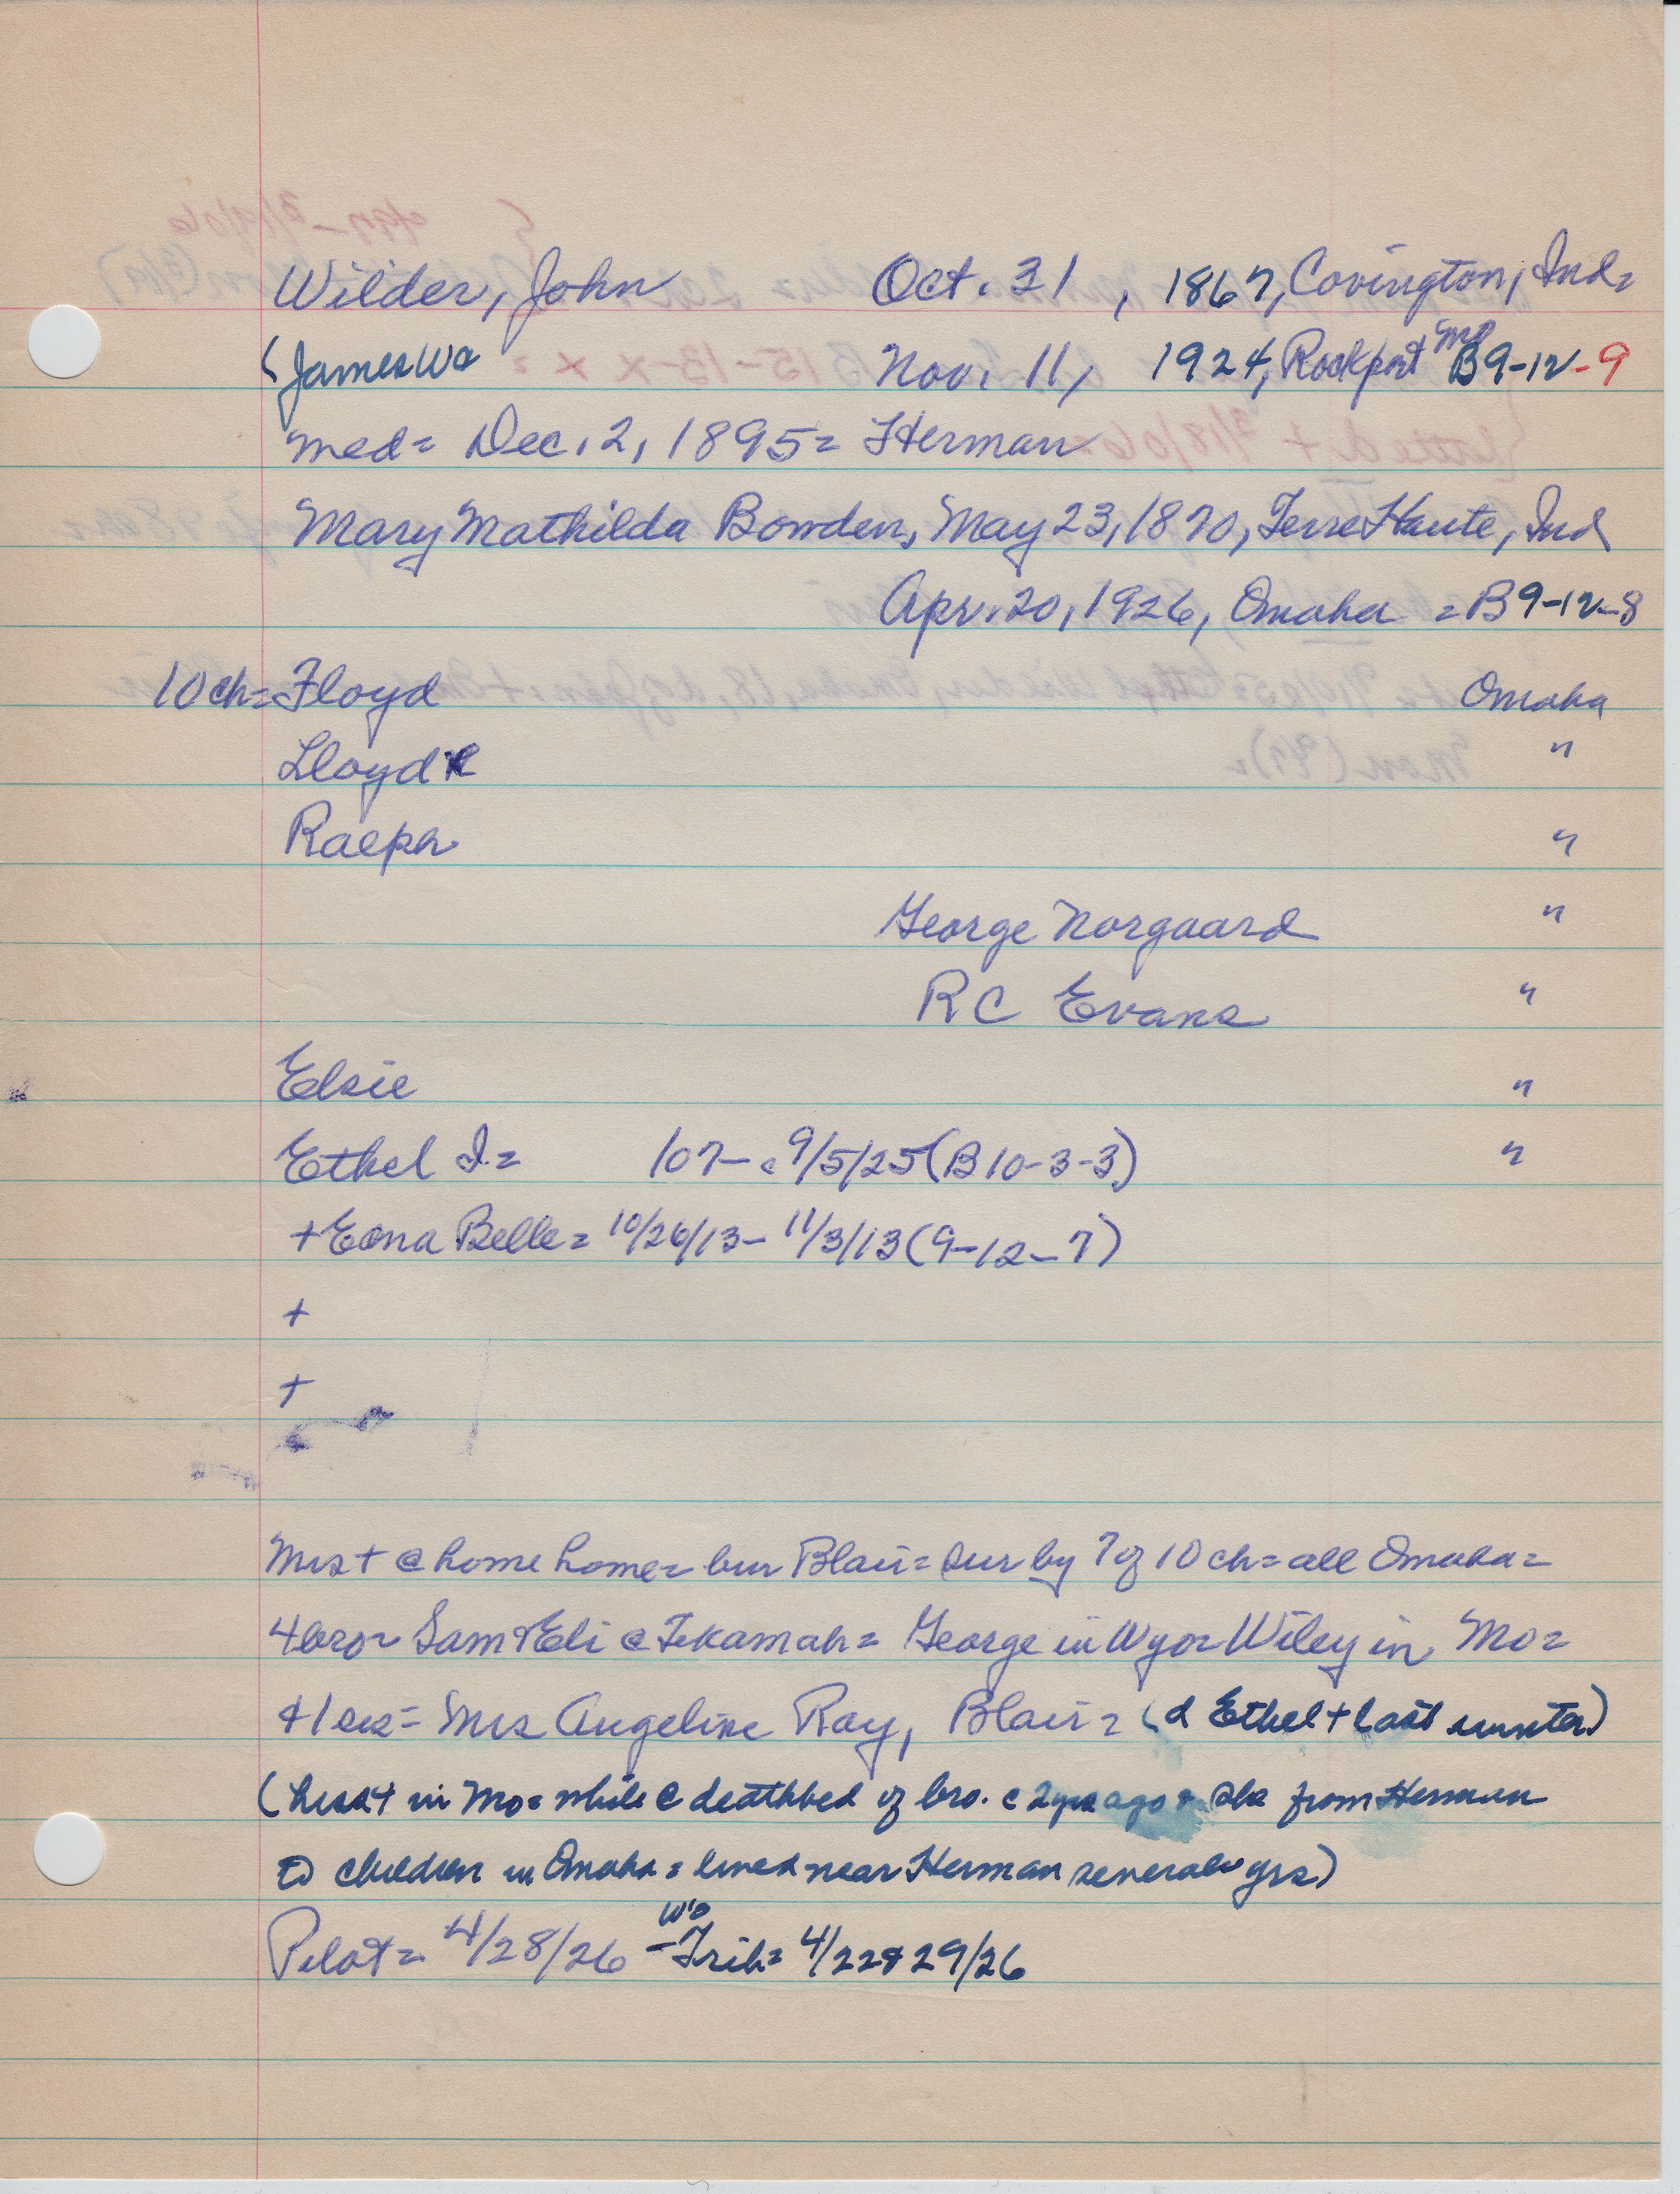 Wilder, John Oct. 31, 1867, Covington, Ind=
(James Wa Nov. 11, 1924, Rockport Mo B9-12-9
med= Dec. 2, 1895= Herman
Mary Mathilda Bowden, May 23, 1870, Terre Haute, Ind
Apr. 20, 1926, Omaha = B9-12-8
10 ch= Floyd Omaha
Lloyd R "
Raeph "
George Norgaard "
R C Evans "
Elsie "
Ethel I.= 107- c 9/5/25 (B10-3-3) "
+Edna Belle= 10/26/13- 11/3/13 (9-12-7)
+
+
Mrs + @ home home= bur Blair= sur by 7 of 10 ch= all Omaha=
4 bro= Sam & Eli @ Tekamah= George in Wyo= Wiley in Mo=
+1 sis= Mrs Angeline Ray, Blair= (d Ethel + last winter)
(hus + in Mo= while @ deathbed of bro. c 2 yrs ago & she from Herman
to children in Omaha= lived near Herman several yrs)
Pilot= 4/28/26 - W's Trib= 4/22 & 29/26